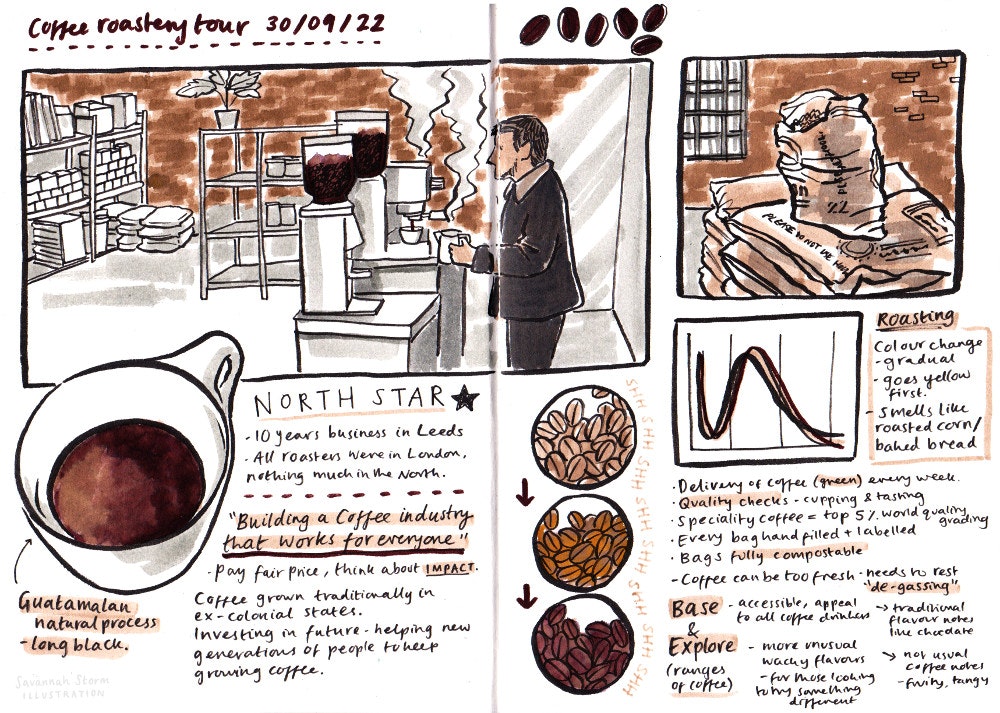 Coffee roastery tour 30/09/22
PLEASE DO NOT USE
NORTH STAR
- 10 years business in Leeds
- All roasters were in London,
nothing much in the North.
"Building a Coffee industry
that works for everyone"
- Pay fair price, think about IMPACT.
Coffee grown traditionally in
ex-colonial states.
Investing in future - helping new
generations of people to keep
growing coffee.
Guatamalan
natural process
- long black.
Savannah Storm
ILLUSTRATION
SHH SHH SHH SHH SHH SHH SHH SHH
Roasting
Colour change
- gradual
- goes yellow
first.
- Smells like
roasted corn/
baked bread
· Delivery of coffee (green) every week.
· Quality checks - cupping & tasting
· Speciality coffee = top 5% world quality
grading
· Every bag hand filled + labelled
· Bags fully compostable
- Coffee can be too fresh - needs to rest
"de-gassing"
Base
&
Explore
(ranges
of coffee)
- accessible, appeal
to all coffee drinkers
→ traditional
flavour notes
like chocolate
- more unusual
wacky flavours
- for those looking
to try something
different
→ not usual
coffee notes
- fruity, tangy